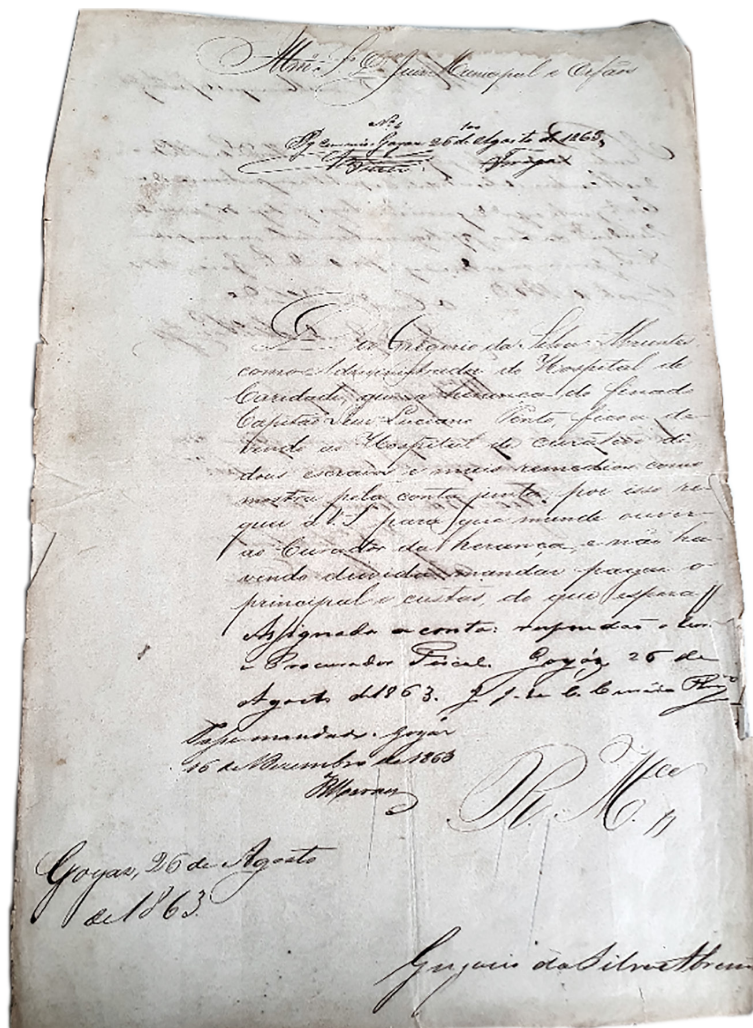 Illmo. Sr. Dr. Juiz Municipal e Orfãos
No. 4 100
Pg Goyaz 26 de Agosto de 1863
Diz Gregorio da Silva Abrantes
como Administrador do Hospital de
Caridade, que a herança do finado
Capitão Luciano Pinto, ficou de-
vendo ao Hospital do curativo di
dous escravos e mais remedios como
mostra pela conta junta, por isso re-
quer a V.S. para que mande ouver
ao Curador da herança, e não ha-
vendo duvida mandar pagar o
principal e custas, do que espera //
Assignada a conta: respondão o Cor.
e Procurador Fiscal. Goyáz 26 de
Agosto de 1863.
mandado. Goyáz
16 de de 1863
R. Mce //
Goyaz, 26 de Agosto
de 1863.
Gregorio da Silva